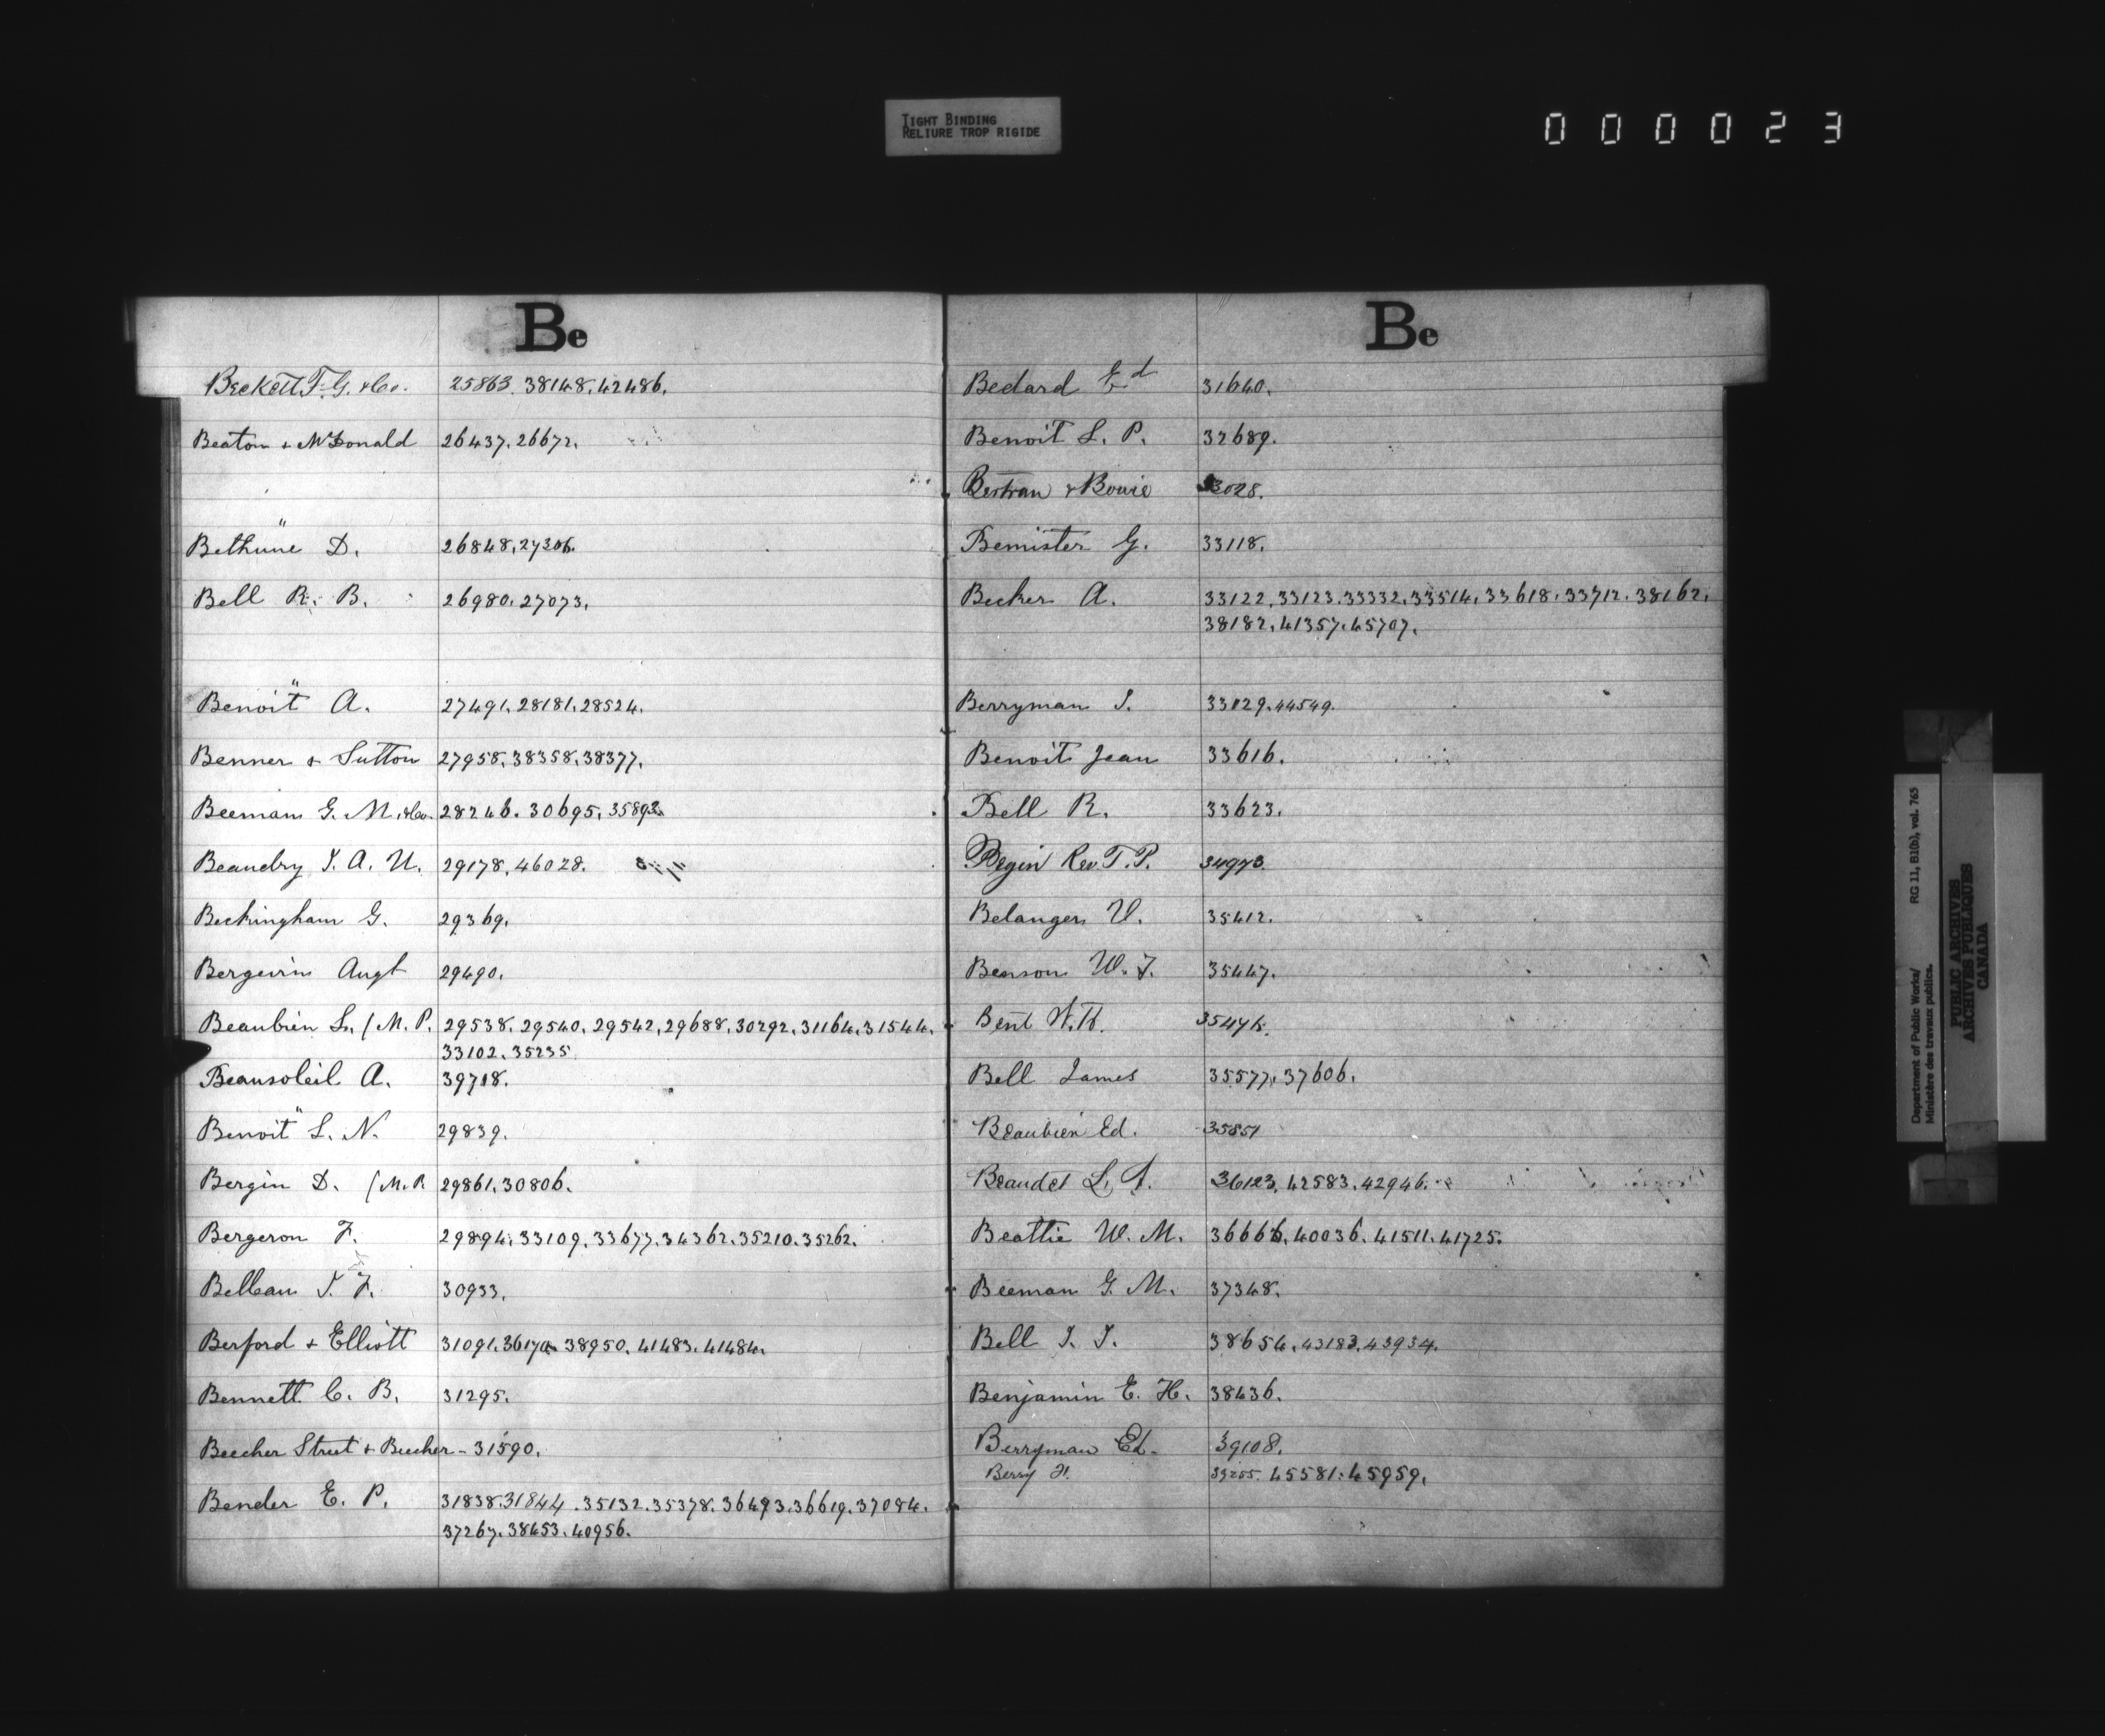 TIGHT BINDING
RELIURE TROP RIGIDE
000023
Be
Beckett F. G. & Co. 25863. 38148. 42486.
Beaton & McDonald 26437. 26672.
Bethune D. 26848. 27306.
Bell R. B. 26980. 27073.
Benoit A. 27491. 28181. 28524.
Benner & Sutton 27958. 38358. 38377.
Beeman G. M. & Co. 28246. 30695. 35892.
Beaudry J. A. U. 29178. 46028.
Beckingham G. 29369.
Bergevin Augt 29490.
Beaubien L. (M. P. 29538. 29540. 29542. 29688. 30292. 31164. 31544.
33102. 35235.
Beausoleil A. 39718.
Benoit L. N. 29839.
Bergin D. (M. P. 29861. 30806.
Bergeron F. 29894. 33109. 33677. 34362. 35210. 35262.
Belleau J. F. 30933.
Berford & Elliott 31091. 36170. 38950. 41483. 41484.
Bennett C. B. 31295.
Beecher Street & Beecher - 31590.
Bender E. P. 31838. 31844. 35132. 35378. 36493. 36619. 37084.
37267. 38453. 40956.
Be
Bedard Ed 31640.
Benoit L. P. 32689.
Bertran & Bowie 33028.
Bemister G. 33118.
Becker A. 33122. 33123. 33332. 33514. 33618. 33712. 38162.
38182. 41357. 45707.
Berryman J. 33129. 44549.
Benoit Jean 33616.
Bell R. 33623.
Begin Rev. T. P. 34973.
Belanger U. 35412.
Benson W. T. 35447.
Bent W. H.
Bell James 35577. 37606.
Beaubien Ed. 35851
Beaudet L. A. 36123. 42583. 42946.
Beattie W. M. 36666. 40036. 41511. 41725.
Beeman G. M. 37348.
Bell J. J. 38654. 43183. 43934.
Benjamin E. H. 38436.
Berryman Ed. 39108.
Berry H. 39255. 45581. 45959.
Department of Public Works/ RG 11, B1(b), vol. 765
Ministère des travaux publics.
PUBLIC ARCHIVES
ARCHIVES PUBLIQUES
CANADA